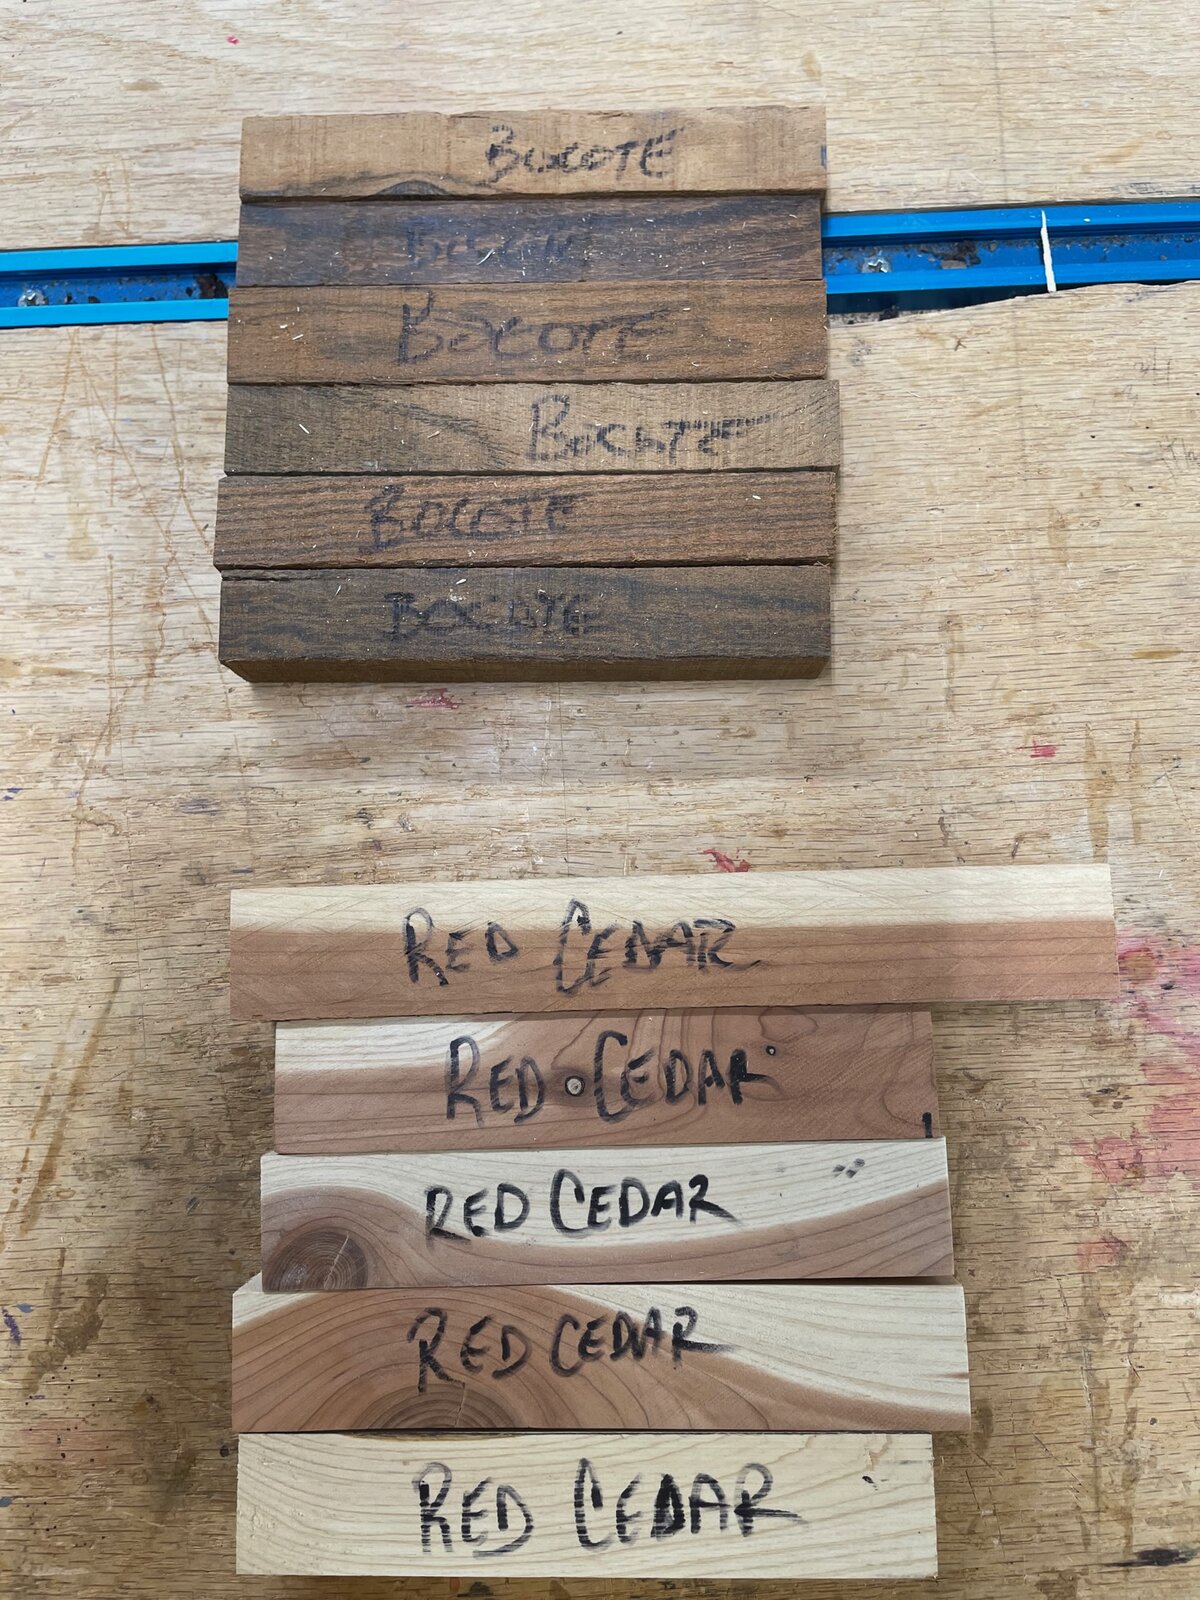 BOCOTE
BOCOTE
BOCOTE
BOCOTE
BOCOTE
RED CEDAR
RED CEDAR
RED CEDAR
RED CEDAR
RED CEDAR